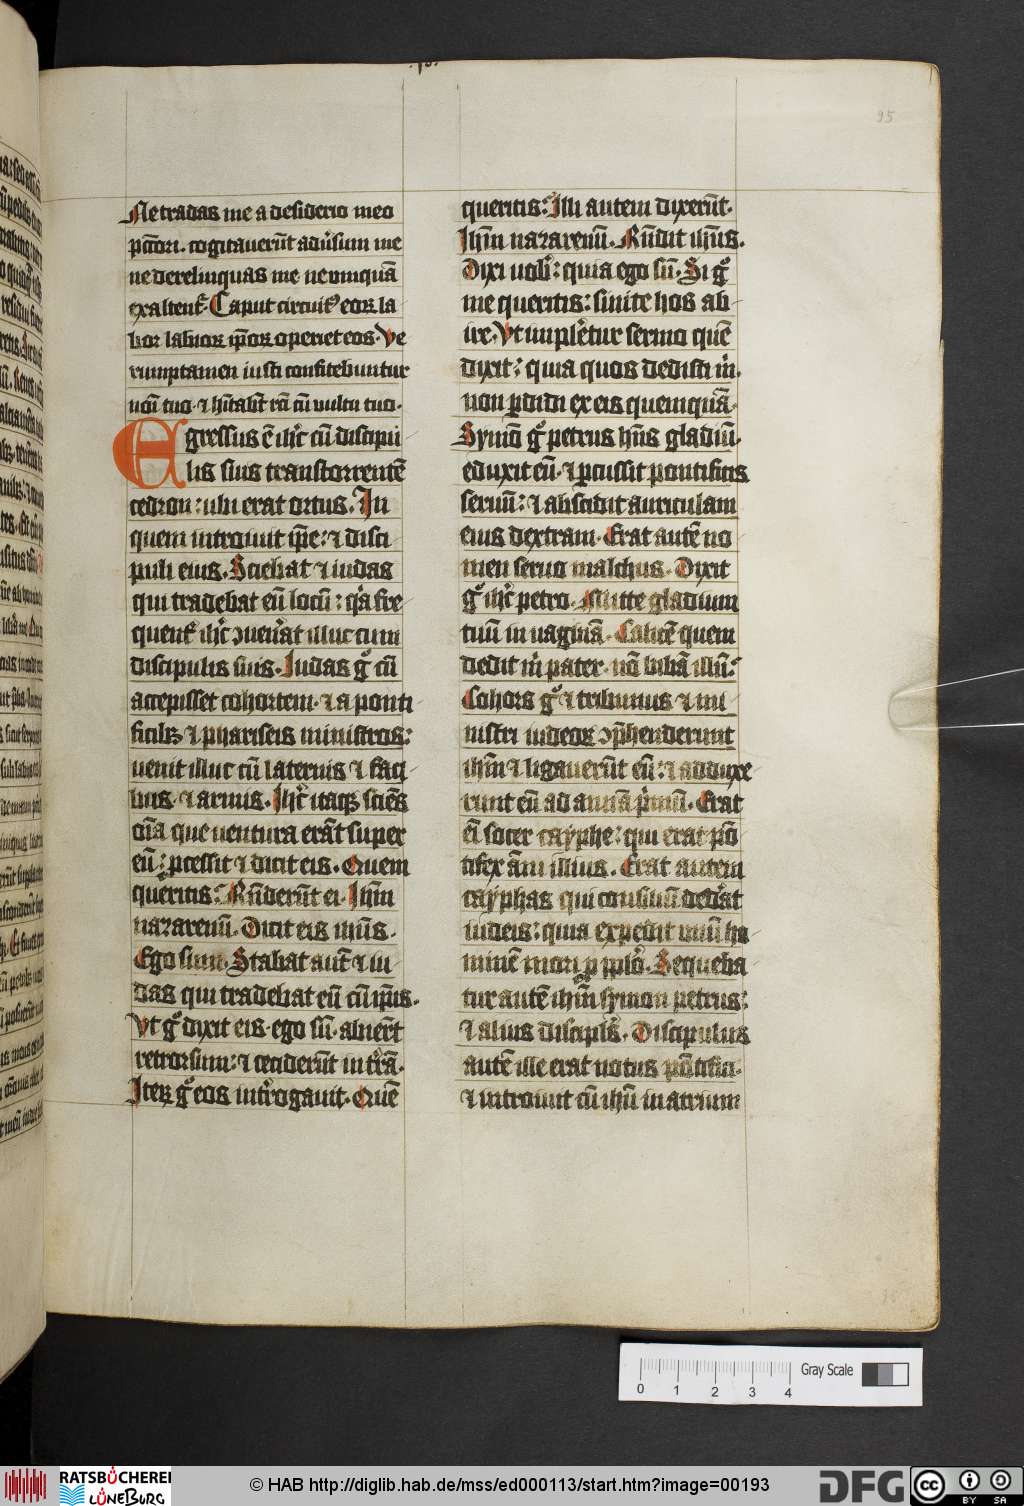 95
Ne tradas me a desiderio meo
pctori. cogitauerūt adūsum me
ne derelinquas me ne vnnquā
exaltent᷑. Caput circuitꝰ eoꝝ la
bor labioꝝ ip̄oꝝ operiet eos. Ve
rumptamen iusti confitebuntur
noī tuo. ⁊ hītabūt rcī cū vultu tuo.
Egressus ē ihc̄ cū discipu
lis suis transtorrentē
cedron: ubi erat ortus. In
quem introiuit ip̄e: ⁊ disci
puli eius. Sciebat ⁊ iudas
qui tradebat eū locū: qͣa fre
quent᷑ ihc̄ ꝯuenāt illuc cum
discipulis suis. Iudas gͦ cū
accepisset cohortem. ⁊ a ponti
ficibꝫ ⁊ phariseis ministros:
uenit illuc cū laternis ⁊ facī
bus. ⁊ armis. Ihc̄ itaqꝫ sciēs
oīa que uentura erāt super
eū: ꝓcessit ⁊ dicit eis. Quem
queritis: Rn̄derūt ei. Ihm̄
nazarenū. Dicit eis ihūs.
Ego sum. Stabat aut̄ ⁊ iu
das qui tradebat eū cū ip̄is.
Vt gͦ dixit eis. ego sū. abierūt
retrorsum: ⁊ ceciderūt in trā.
Iteꝝ gͦ eos introgauit. Quē
queritis: Illi autem dixerūt.
Ihm̄ nazarenū. Rn̄dit ihūs.
Dixi uob̄: quia ego sū. Si gͦ
me queritis: sinite hos ab
ire. Vt inplēetur sermo quē
dixit: quia quos dedisti m̄.
non ꝑdidi ex eis quemquā.
Symō gͦ petrus hn̄s gladiū.
eduxit eū. ⁊ ꝑcussit pontificis
seruū: ⁊ abscidit auriculam
eius dextram. Erat autē no
men seruo malchus. Dixit
gͦ ihc̄ petro. Mitte gladium
tuū in uaginā. Calicē quem
dedit m̄ pater. nō bibā illū:
Cohors gͦ ⁊ tribunus ⁊ mi
nistri iudeoꝝ ꝯp̄henderunt
ihm̄ ⁊ ligauerūt eū: ⁊ adduxe
runt eū ad annā p̄mū. Erat
eī socer cayphe: qui erat pō
tifex āni illius. Erat autem
cayphas qui consiliū dedāt
iudeis: quia expedit vnū ho
minē mori ꝓ pplo. Sequeba
tur autē ihm̄ symon petrus:
⁊ alius discipls̄. Discipulus
autē ille erat notus pōtifici.
⁊ introiuit cū ihū in atrium
0 1 2 3 4
Gray Scale
RATSBÜCHEREI
LÜNEBURG
© HAB http://diglib.hab.de/mss/ed000113/start.htm?image=00193
DFG
cc BY SA